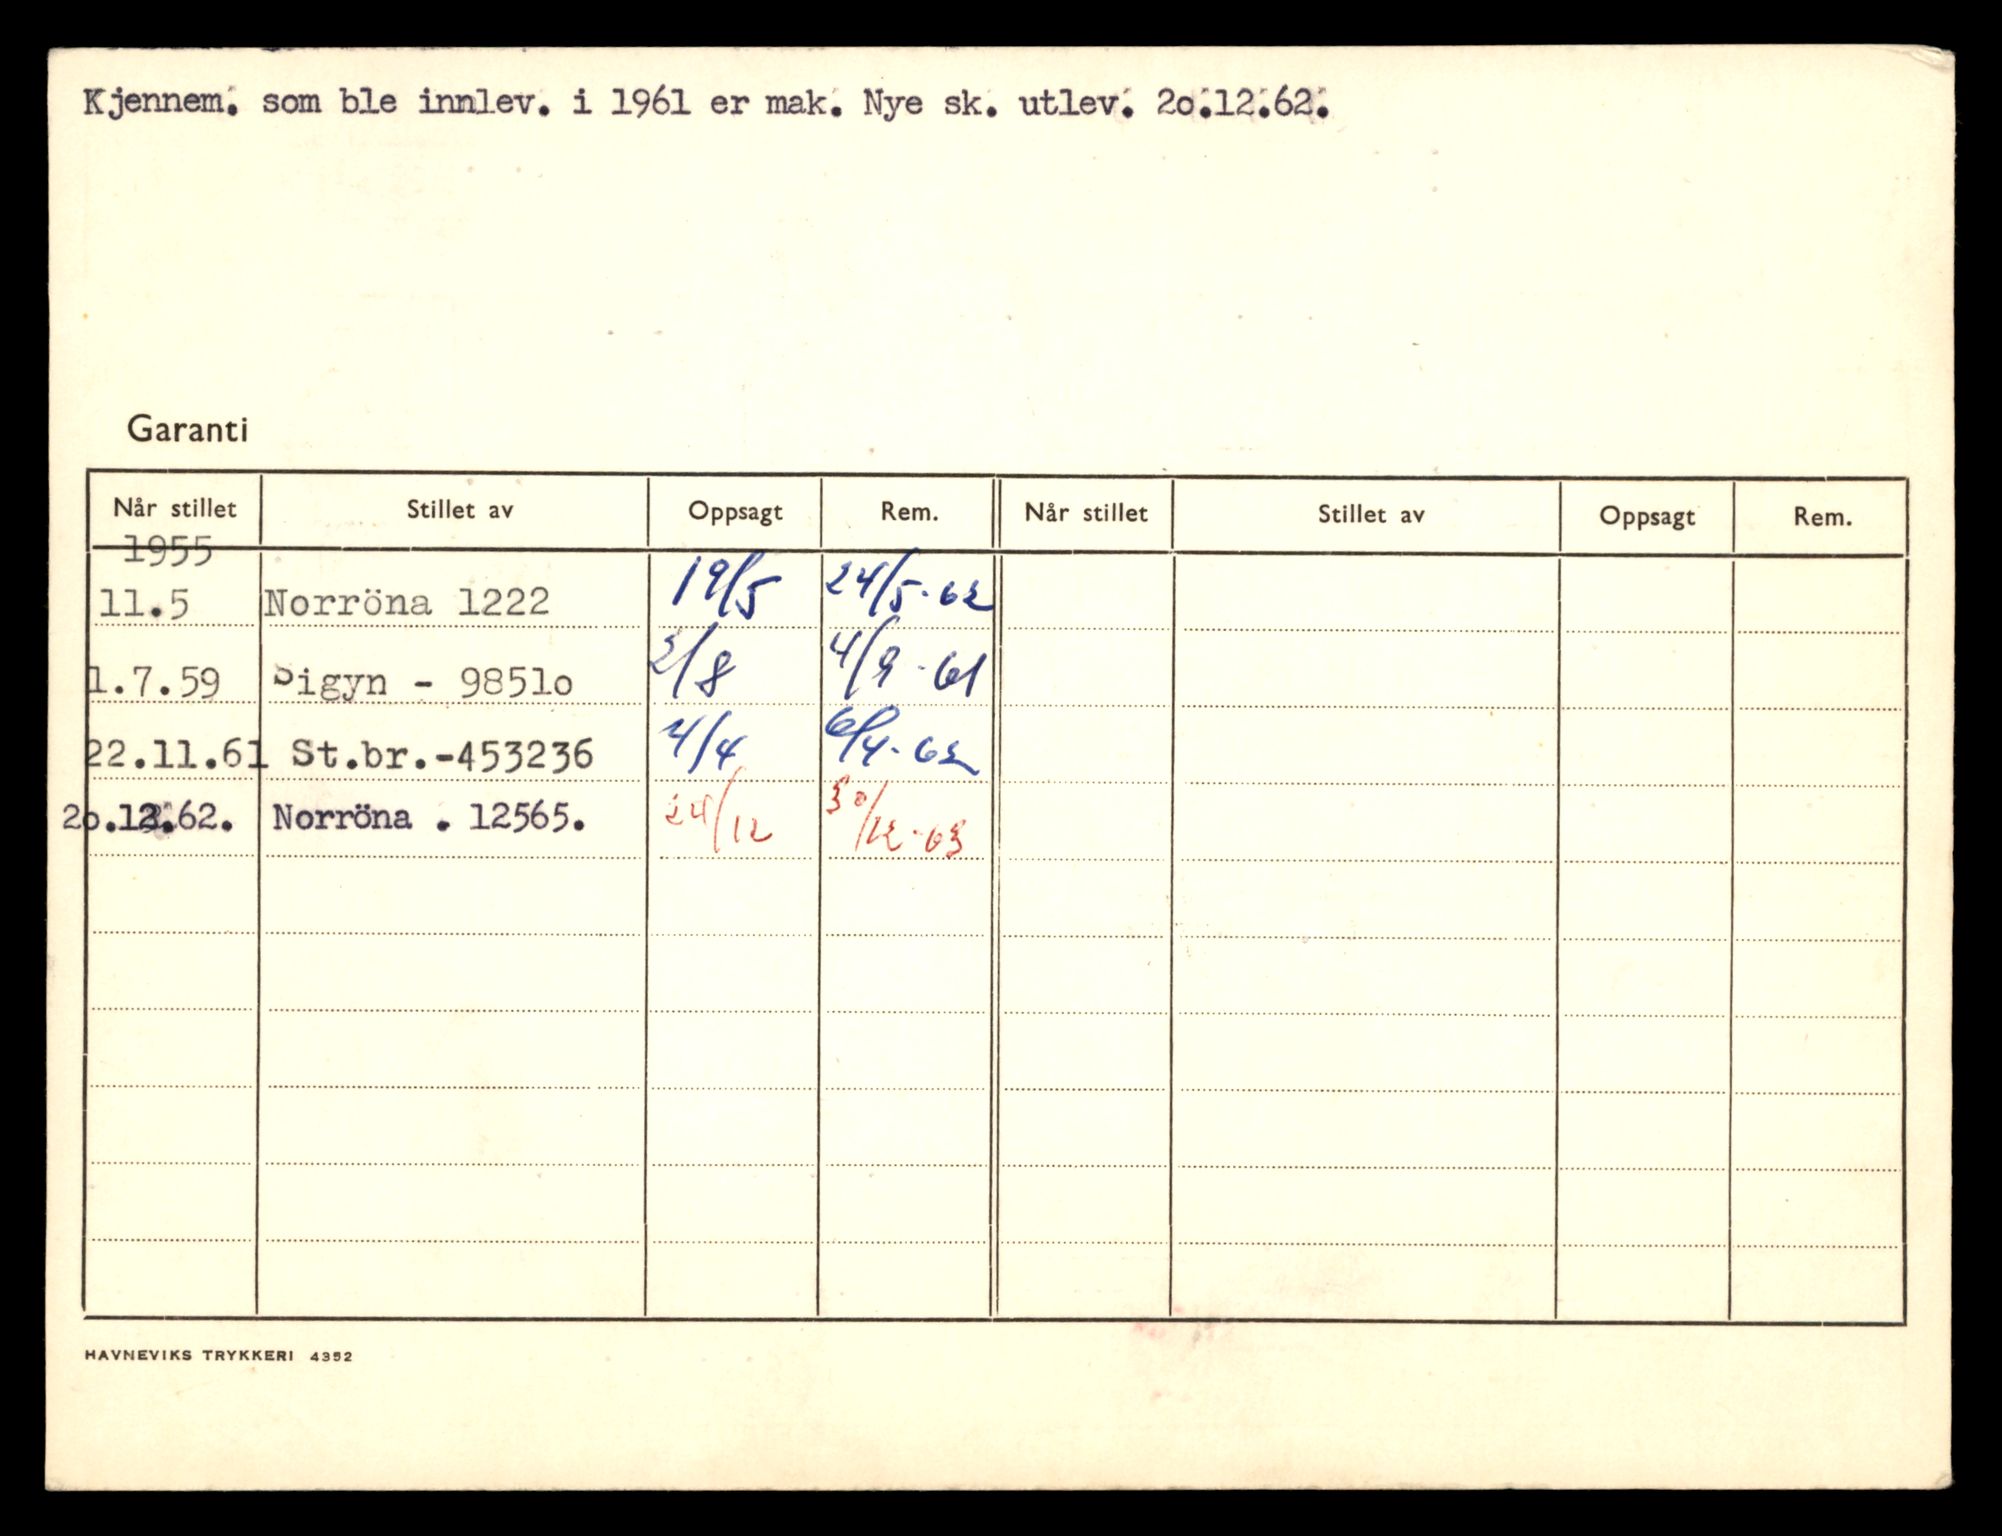 Kjennem. som ble innlev. i 1961 er mak. Nye sk. utlev. 2o.12.62.
Garanti
Når stillet Stillet av Oppsagt Rem. Når stillet Stillet av Oppsagt Rem.
1955
11.5 Norröna 1222 19/5 24/5-62
1.7.59 Sigyn - 9851o 2/8 4/9-61
22.11.61 St.br.-453236 4/4 6/4-62
2o.12.62. Norröna . 12565. 24/12 30/12-63
HAVNEVIKS TRYKKERI 4352